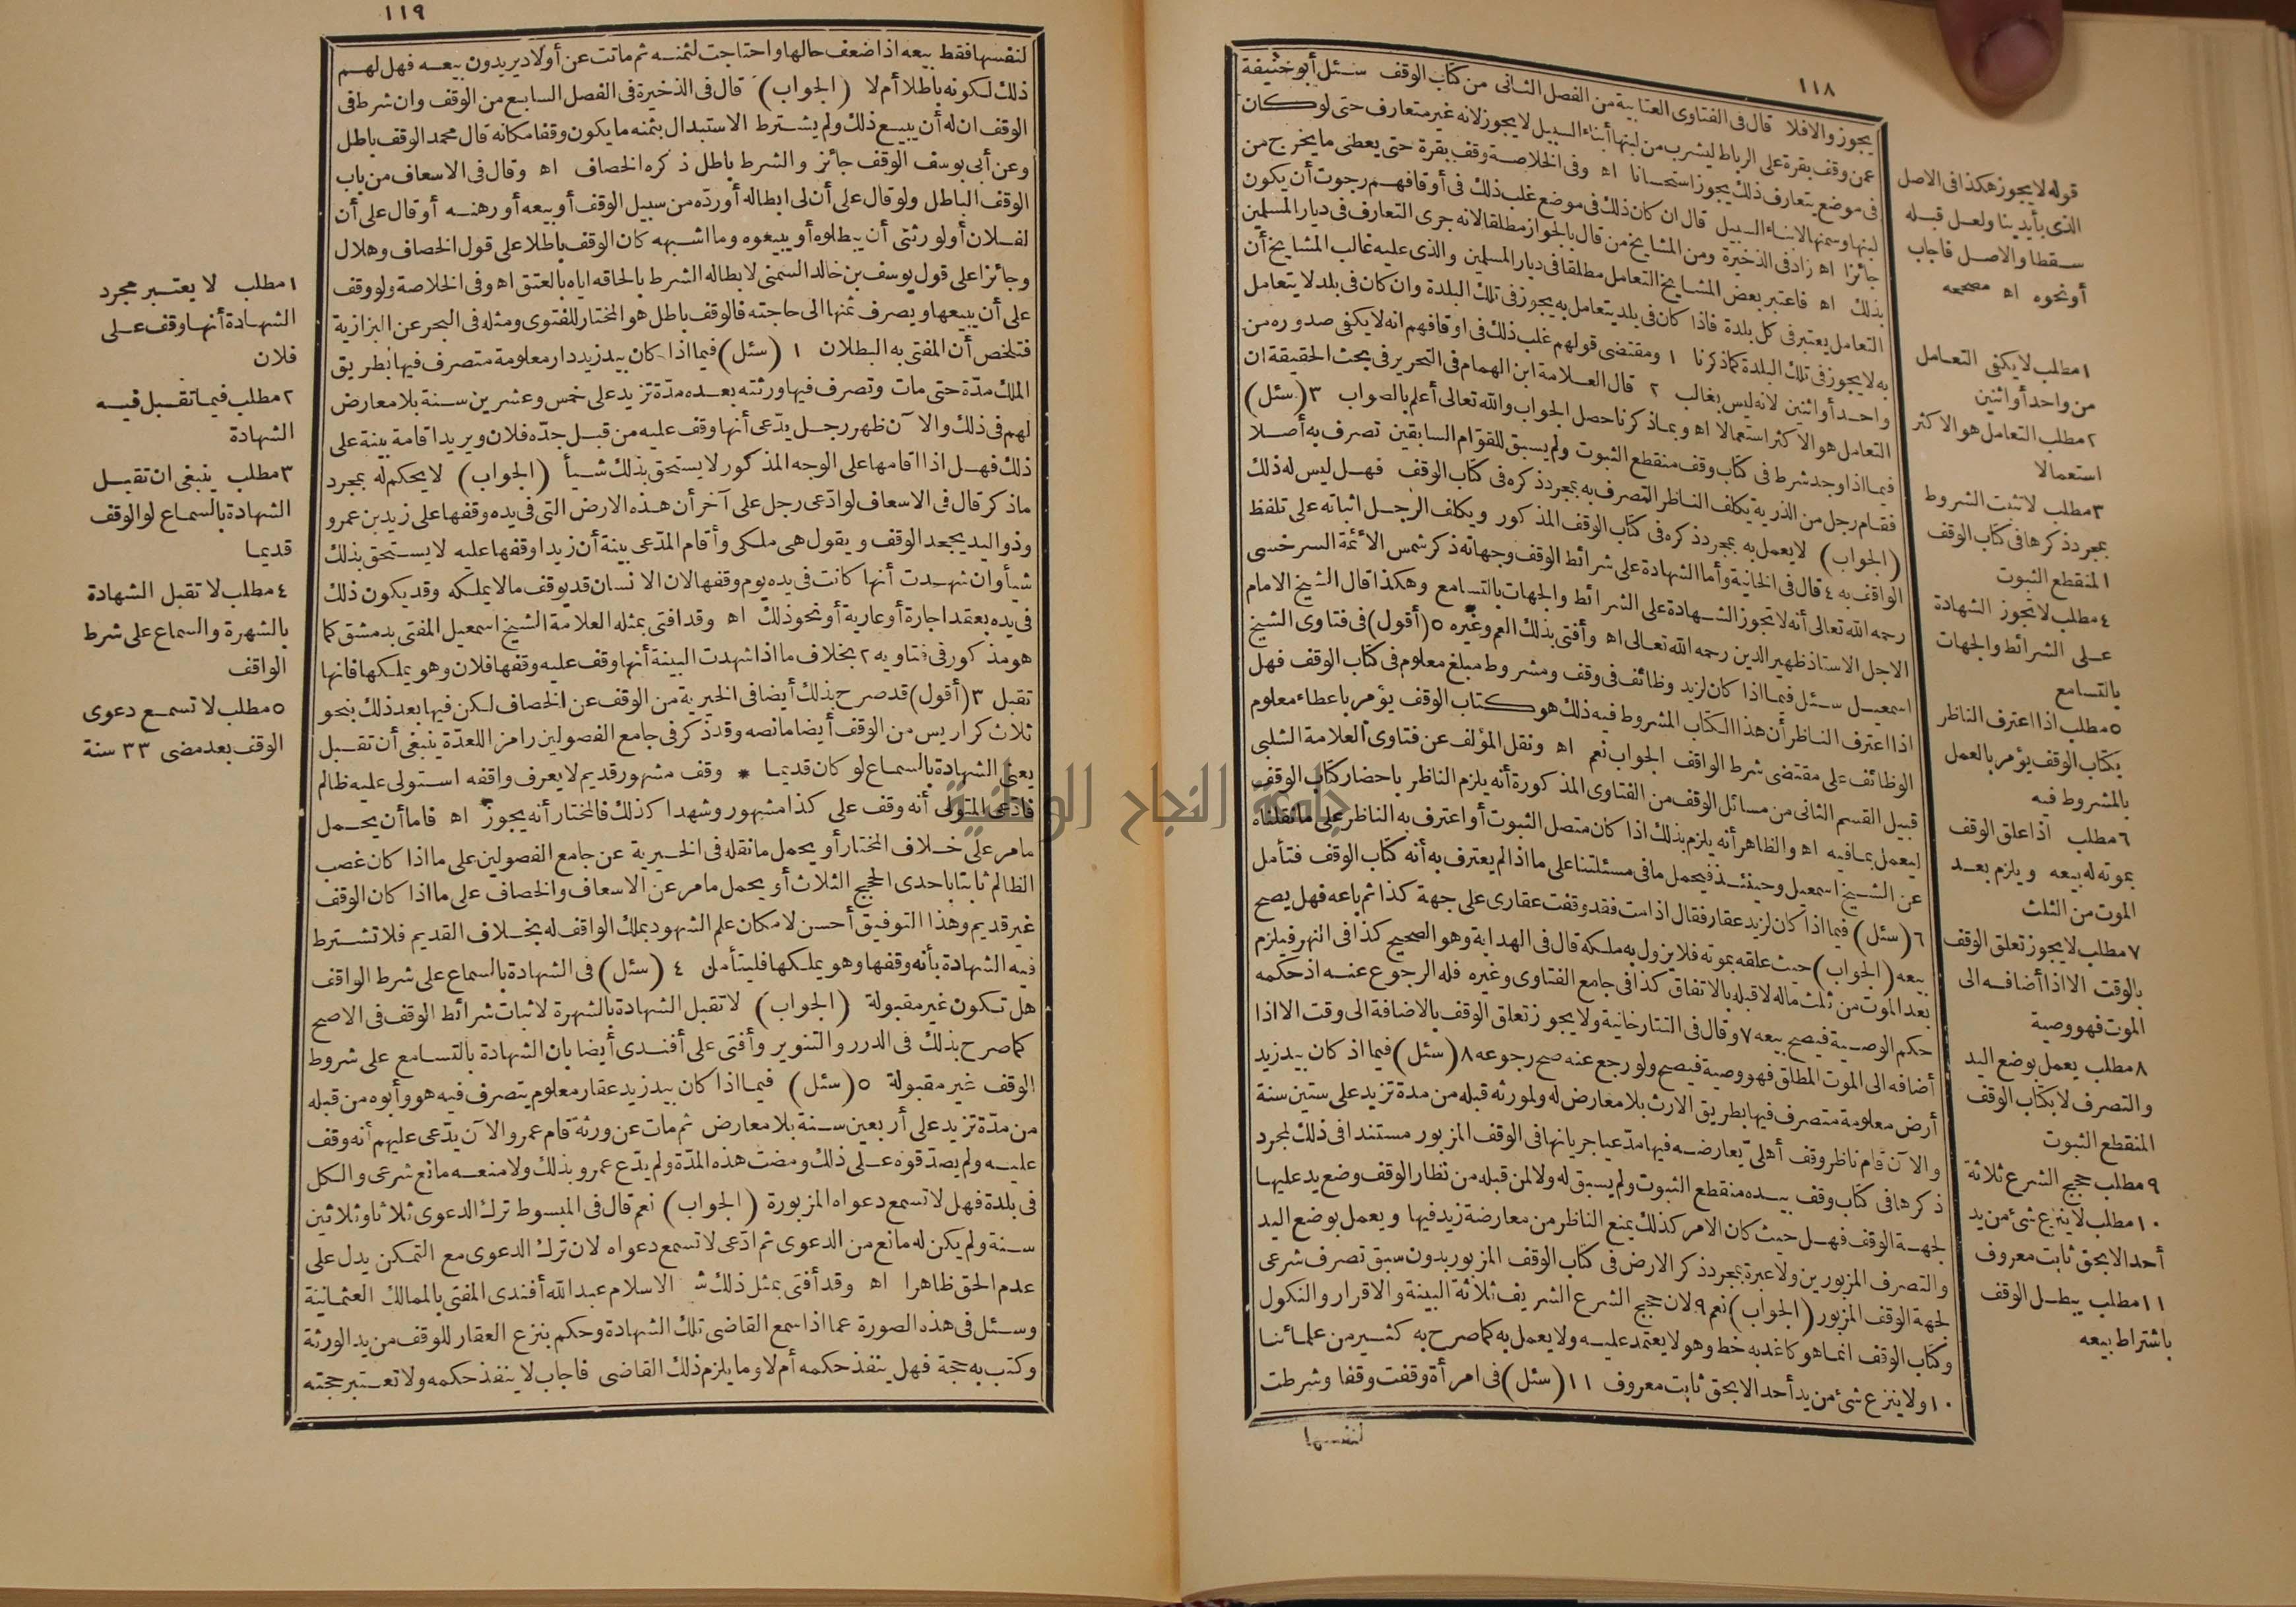 ١١٨
يجوز والافلا قال فى الفتاوى العتابية من الفصل الثانى من كتاب الوقف سئل أبو حنيفة
عمن وقف بقرة على الرباط ليشرب من لبنها أبناء السبيل لا يجوز لانه غير متعارف حتى لو كان
فى موضع يتعارف ذلك يجوز استحسانا اه وفى الخلاصة وقف بقرة حتى يعطى ما يخرج من
لبنها وسمنها لابناء السبيل قال ان كان ذلك فى موضع غلب ذلك فى أوقافهم رجوت أن يكون
جائزا اه زاد فى الذخيرة ومن المشايخ من قال بالجواز مطلقا لانه جرى التعارف فى ديار المسلمين
بذلك اه فاعتبر بعض المشايخ التعامل مطلقا فى ديار المسلمين والذى عليه غالب المشايخ أن
التعامل يعتبر فى كل بلدة فاذا كان فى بلد يتعامل به يجوز فى تلك البلدة وان كان فى بلد لا يتعامل
به لا يجوز فى تلك البلدة كما ذكرنا ١ ومقتضى قولهم غلب ذلك فى اوقافهم انه لا يكفى صدوره من
واحد أو اثنين لانه ليس بغالب ٢ قال العلامة ابن الهمام فى التحرير فى بحث الحقيقة ان
التعامل هو الاكثر استعمالا اه وبما ذكرنا حصل الجواب والله تعالى أعلم بالصواب ٣ (سئل)
فيما اذا وجد شرط فى كتاب وقف منقطع الثبوت ولم يسبق للقوام السابقين تصرف به أصلا
فقام رجل من الذرية يكلف الناظر التصرف به بمجرد ذكره فى كتاب الوقف فهل ليس له ذلك
(الجواب) لا يعمل به بمجرد ذكره فى كتاب الوقف المذكور ويكلف الرجل اثباته على تلفظ
الواقف به ٤ قال فى الخانية وأما الشهادة على شرائط الوقف وجهاته ذكر شمس الأئمة السرخسى
رحمه الله تعالى أنه لا تجوز الشهادة على الشرائط والجهات بالتسامع وهكذا قال الشيخ الامام
الاجل الاستاذ ظهير الدين رحمه الله تعالى اه وأفتى بذلك العم وغيره ٥ (أقول) فى فتاوى الشيخ
اسمعيل سئل فيما اذا كان لزيد وظائف فى وقف ومشروط مبلغ معلوم فى كتاب الوقف فهل
اذا اعترف الناظر أن هذا الكتاب المشروط فيه ذلك هو كتاب الوقف يؤمر باعطاء معلوم
الوظائف على مقتضى شرط الواقف الجواب نعم اه ونقل المؤلف عن فتاوى العلامة الشلبى
قبيل القسم الثانى من مسائل الوقف من الفتاوى المذكورة أنه يلزم الناظر باحضار كتاب الوقف
ليعمل بما فيه اه والظاهر أنه يلزم بذلك اذا كان متصل الثبوت أو اعترف به الناظر على ما نقلناه
عن الشيخ اسمعيل وحينئذ فيحمل ما فى مسئلتنا على ما اذا لم يعترف به أنه كتاب الوقف فتأمل
٦ (سئل) فيما اذا كان لزيد عقار فقال اذا مت فقد وقفت عقارى على جهة كذا ثم باعه فهل يصح
بيعه (الجواب) حيث علقه بموته فلا يزول به ملكه قال فى الهداية وهو الصحيح كذا فى النهر فيلزم
بعد الموت من ثلث ماله لا قبله بالاتفاق كذا فى جامع الفتاوى وغيره فله الرجوع عنه اذ حكمه
حكم الوصية فيصح بيعه ٧ وقال فى التتارخانية ولا يجوز تعلق الوقف بالاضافة الى وقت الا اذا
أضافه الى الموت المطلق فهو وصية فيصح ولو رجع عنه صح رجوعه ٨ (سئل) فيما اذ كان بيد زيد
أرض معلومة متصرف فيها بطريق الارث بلا معارض له ولمورثه قبله من مدة تزيد على ستين سنة
والآن قام ناظر وقف أهلىّ يعارضه فيها مدّعيا جريانها فى الوقف المزبور مستندا فى ذلك لمجرد
ذكرها فى كتاب وقف بيده منقطع الثبوت ولم يسبق له ولا لمن قبله من نظار الوقف وضع يد عليها
لجهة الوقف فهل حيث كان الامر كذلك يمنع الناظر من معارضة زيد فيها ويعمل بوضع اليد
والتصرف المزبورين ولا عبرة بمجرد ذكر الارض فى كتاب الوقف المزبور بدون سبق تصرف شرعى
لجهة الوقف المزبور (الجواب) نعم ٩ لان حجج الشرع الشريف ثلاثة البينة والاقرار والنكول
وكتاب الوقف انما هو كاغد به خط وهو لا يعتمد عليه ولا يعمل به كما صرح به كثير من علمائنا
١٠ ولا ينزع شئ من يد أحد الا بحق ثابت معروف ١١ (سئل) فى امرأة وقفت وقفا وشرطت
لنفسها
قوله لا يجوز هكذا فى الاصل
الذى بأيدينا ولعل قبله
سقطا والاصل فاجاب
أو نحوه اه مصححه
١ مطلب لا يكفى التعامل
من واحد أو اثنين
٢ مطلب التعامل هو الاكثر
استعمالا
٣ مطلب لا تثبت الشروط
بمجرد ذكرها فى كتاب الوقف
المنقطع الثبوت
٤ مطلب لا تجوز الشهادة
على الشرائط والجهات
بالتسامع
٥ مطلب اذا اعترف الناظر
بكتاب الوقف يؤمر بالعمل
بالمشروط فيه
٦ مطلب اذا علق الوقف
بموته له بيعه ويلزم بعد
الموت من الثلث
٧ مطلب لا يجوز تعلق الوقف
بالوقت الا اذا أضافه الى
الموت فهو وصية
٨ مطلب يعمل بوضع اليد
والتصرف لا بكتاب الوقف
المنقطع الثبوت
٩ مطلب حجج الشرع ثلاثة
١٠ مطلب لا ينزع شئ من يد
أحد الا بحق ثابت معروف
١١ مطلب يبطل الوقف
باشتراط بيعه
١١٩
لنفسها فقط بيعه اذا ضعف حالها واحتاجت لثمنه ثم ماتت عن أولاد يريدون بيعه فهل لهم
ذلك لكونه باطلا أم لا (الجواب) قال فى الذخيرة فى الفصل السابع من الوقف وان شرط فى
الوقف ان له أن يبيع ذلك ولم يشترط الاستبدال بثمنه ما يكون وقفا مكانه قال محمد الوقف باطل
وعن أبى يوسف الوقف جائز والشرط باطل ذكره الخصاف اه وقال فى الاسعاف من باب
الوقف الباطل ولو قال على أن لى ابطاله أو ردّه من سبيل الوقف أو بيعه أو رهنه أو قال على أن
لفلان أو لورثتى أن يبطلوه أو يبيعوه وما اشبهه كان الوقف باطلا على قول الخصاف وهلال
وجائزا على قول يوسف بن خالد السمتى لابطاله الشرط بالحاقه اياه بالعتق اه وفى الخلاصة ولو وقف
على أن يبيعها ويصرف ثمنها الى حاجته فالوقف باطل هو المختار للفتوى ومثله فى البحر عن البزازية
فتلخص أن المفتى به البطلان ١ (سئل) فيما اذا كان بيد زيد دار معلومة متصرف فيها بطريق
الملك مدّة حتى مات وتصرف فيها ورثته بعده مدّة تزيد على خمس وعشرين سنة بلا معارض
لهم فى ذلك والآن ظهر رجل يدّعى أنها وقف عليه من قبل جدّه فلان ويريد اقامة بينة على
ذلك فهل اذا اقامها على الوجه المذكور لا يستحق بذلك شيأ (الجواب) لا يحكم له بمجرد
ما ذكر قال فى الاسعاف لو ادّعى رجل على آخر أن هذه الارض التى فى يده وقفها على زيد بن عمرو
وذو اليد يجحد الوقف ويقول هى ملكى وأقام المدّعى بينة أن زيدا وقفها عليه لا يستحق بذلك
شيأ وان شهدت أنها كانت فى يده يوم وقفها لان الانسان قد يوقف ما لا يملكه وقد يكون ذلك
فى يده بعقد اجارة أو عارية أو نحو ذلك اه وقد افتى بمثله العلامة الشيخ اسمعيل المفتى بدمشق كما
هو مذكور فى فتاويه ٢ بخلاف ما اذا شهدت البينة أنها وقف عليه وقفها فلان وهو يملكها فانها
تقبل ٣ (أقول) قد صرح بذلك أيضا فى الخيرية من الوقف عن الخصاف لكن فيها بعد ذلك بنحو
ثلاث كراريس من الوقف أيضا ما نصه وقد ذكر فى جامع الفصولين رامز اللعدّة ينبغى أن تقبل
يعنى الشهادة بالسماع لو كان قديما * وقف مشهور قديم لا يعرف واقفه استولى عليه ظالم
فادّعى المتولى أنه وقف على كذا مشهور وشهدا كذلك فالمختار أنه يجوز اه فاما أن يحمل
ما مر على خلاف المختار أو يحمل ما نقله فى الخيرية عن جامع الفصولين على ما اذا كان غصب
الظالم ثابتا باحدى الحجج الثلاث أو يحمل ما مر عن الاسعاف والخصاف على ما اذا كان الوقف
غير قديم وهذا التوفيق أحسن لامكان علم الشهود بملك الواقف له بخلاف القديم فلا تشترط
فيه الشهادة بأنه وقفها وهو يملكها فليتأمل ٤ (سئل) فى الشهادة بالسماع على شرط الواقف
هل تكون غير مقبولة (الجواب) لا تقبل الشهادة بالشهرة لاثبات شرائط الوقف فى الاصح
كما صرح بذلك فى الدرر والتنوير وأفتى على أفندى أيضا بان الشهادة بالتسامع على شروط
الوقف غير مقبولة ٥ (سئل) فيما اذا كان بيد زيد عقار معلوم يتصرف فيه هو وأبوه من قبله
من مدّة تزيد على أربعين سنة بلا معارض ثم مات عن ورثة قام عمرو الآن يدّعى عليهم أنه وقف
عليه ولم يصدّقوه على ذلك ومضت هذه المدّة ولم يدّع عمرو بذلك ولا منعه مانع شرعى والكل
فى بلدة فهل لا تسمع دعواه المزبورة (الجواب) نعم قال فى المبسوط ترك الدعوى ثلاثا وثلاثين
سنة ولم يكن له مانع من الدعوى ثم ادّعى لا تسمع دعواه لان ترك الدعوى مع التمكن يدل على
عدم الحق ظاهرا اه وقد أفتى بمثل ذلك ش الاسلام عبد الله أفندى المفتى بالممالك العثمانية
وسئل فى هذه الصورة عما اذا سمع القاضى تلك الشهادة وحكم بنزع العقار للوقف من يد الورثة
وكتب به حجة فهل ينفذ حكمه أم لا وما يلزم ذلك القاضى فاجاب لا ينفذ حكمه ولا تعتبر حجته
١ مطلب لا يعتبر مجرد
الشهادة أنها وقف على
فلان
٢ مطلب فيما تقبل فيه
الشهادة
٣ مطلب ينبغى ان تقبل
الشهادة بالسماع لو الوقف
قديما
٤ مطلب لا تقبل الشهادة
بالشهرة والسماع على شرط
الواقف
٥ مطلب لا تسمع دعوى
الوقف بعد مضى ٣٣ سنة
جامعة النجاح الوطنية